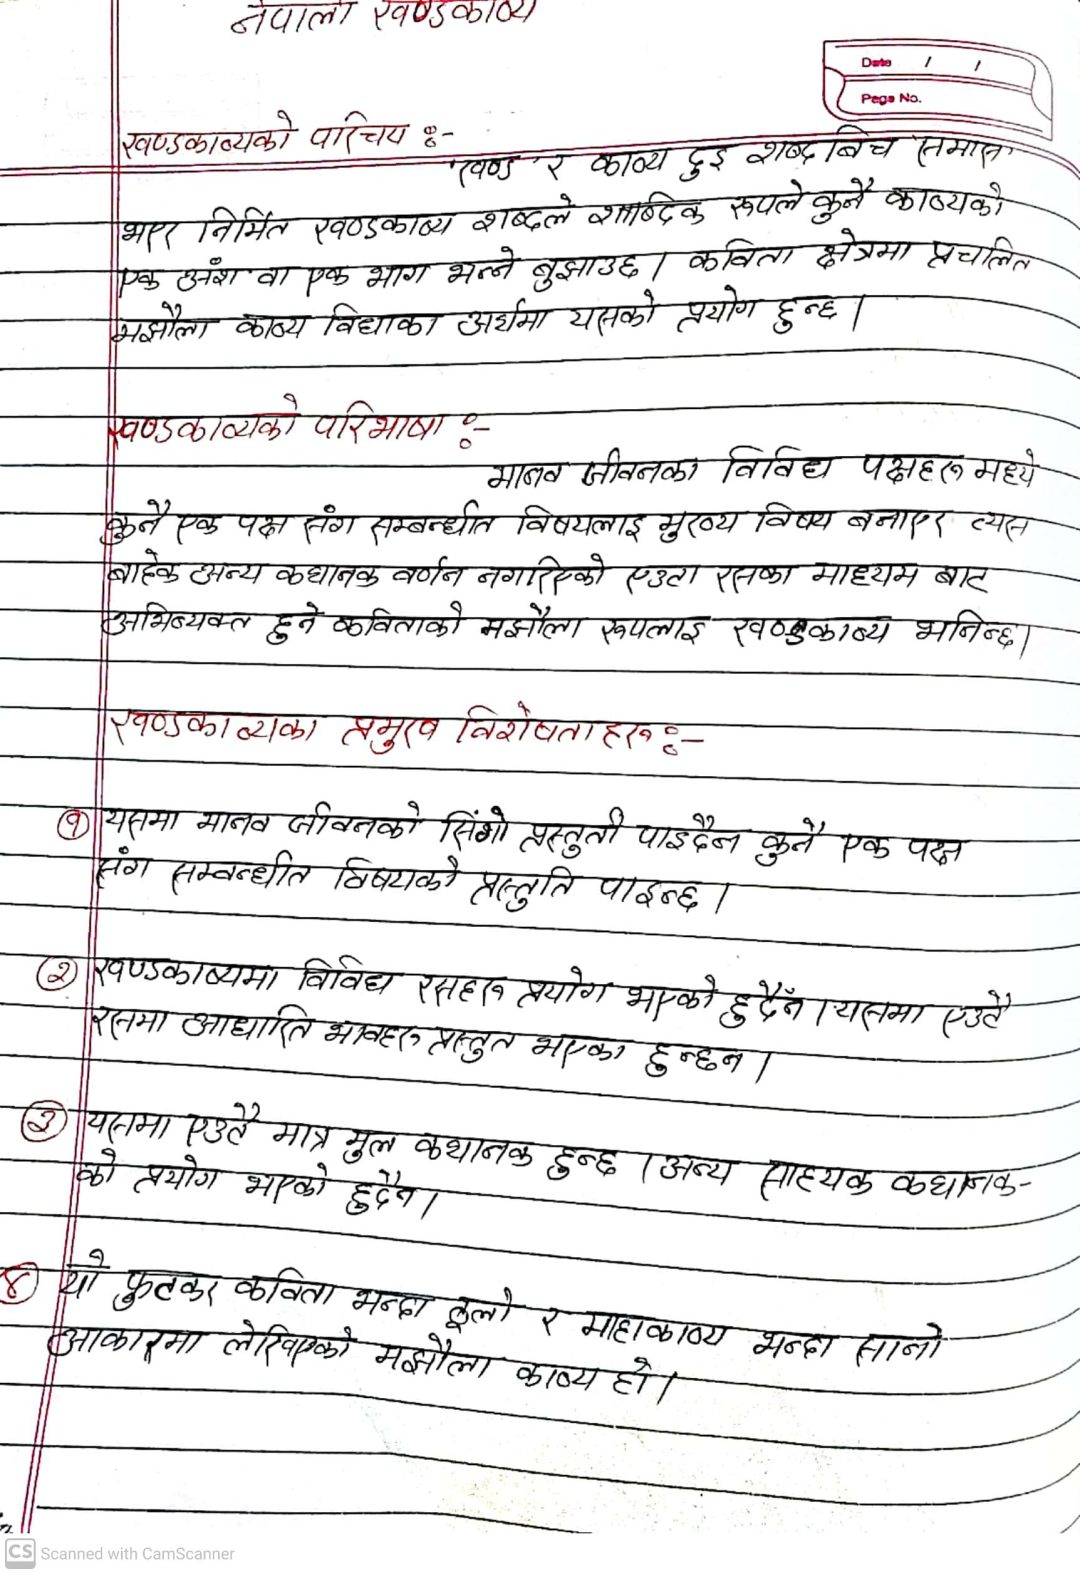 नेपाली खण्डकाव्य
Date / /
Page No.
खण्डकाव्यको परिचय :-
'खण्ड' र काव्य दुइ शब्द बिच समास
भएर निर्मित खण्डकाव्य शब्दले शाब्दिक रूपले कुनै काव्यको
एक अंश वा एक भाग भन्ने बुझाउछ । कविता क्षेत्रमा प्रचलित
मझौला काव्य विधाका अर्थमा यसको प्रयोग हुन्छ ।
खण्डकाव्यको परिभाषा :-
मानव जीवनका विविध पक्षहरु मध्ये
कुनै एक पक्ष संग सम्बन्धीत विषयलाइ मुख्य विषय बनाएर त्यस
बाहेक अन्य कथानक वर्णन नगरिएको एउटा रसका माध्यम बाट
अभिव्यक्त हुने कविताको मझौला रूपलाइ खण्डकाव्य भनिन्छ।
खण्डकाव्यका प्रमुख विशेषताहरु :-
१ यसमा मानव जीवनको सिंगो प्रस्तुती पाइदैन कुनै एक पक्ष
संग सम्वन्धीत विषयको प्रस्तुति पाइन्छ ।
२ खण्डकाव्यमा विविध रसहरु प्रयोग भएको हुदैँन । यसमा एउटै
रसमा आधारित भावहरु प्रस्तुत भएका हुन्छन ।
३ यसमा एउटै मात्र मुल कथानक हुन्छ । अन्य साहयक कथानक-
को प्रयोग भएको हुदैन।
४ यो फुटकर कविता भन्दा ठूलो र माहाकाव्य भन्दा सानो
आकारमा लेखिएको मझौला काव्य हो ।
CS Scanned with CamScanner